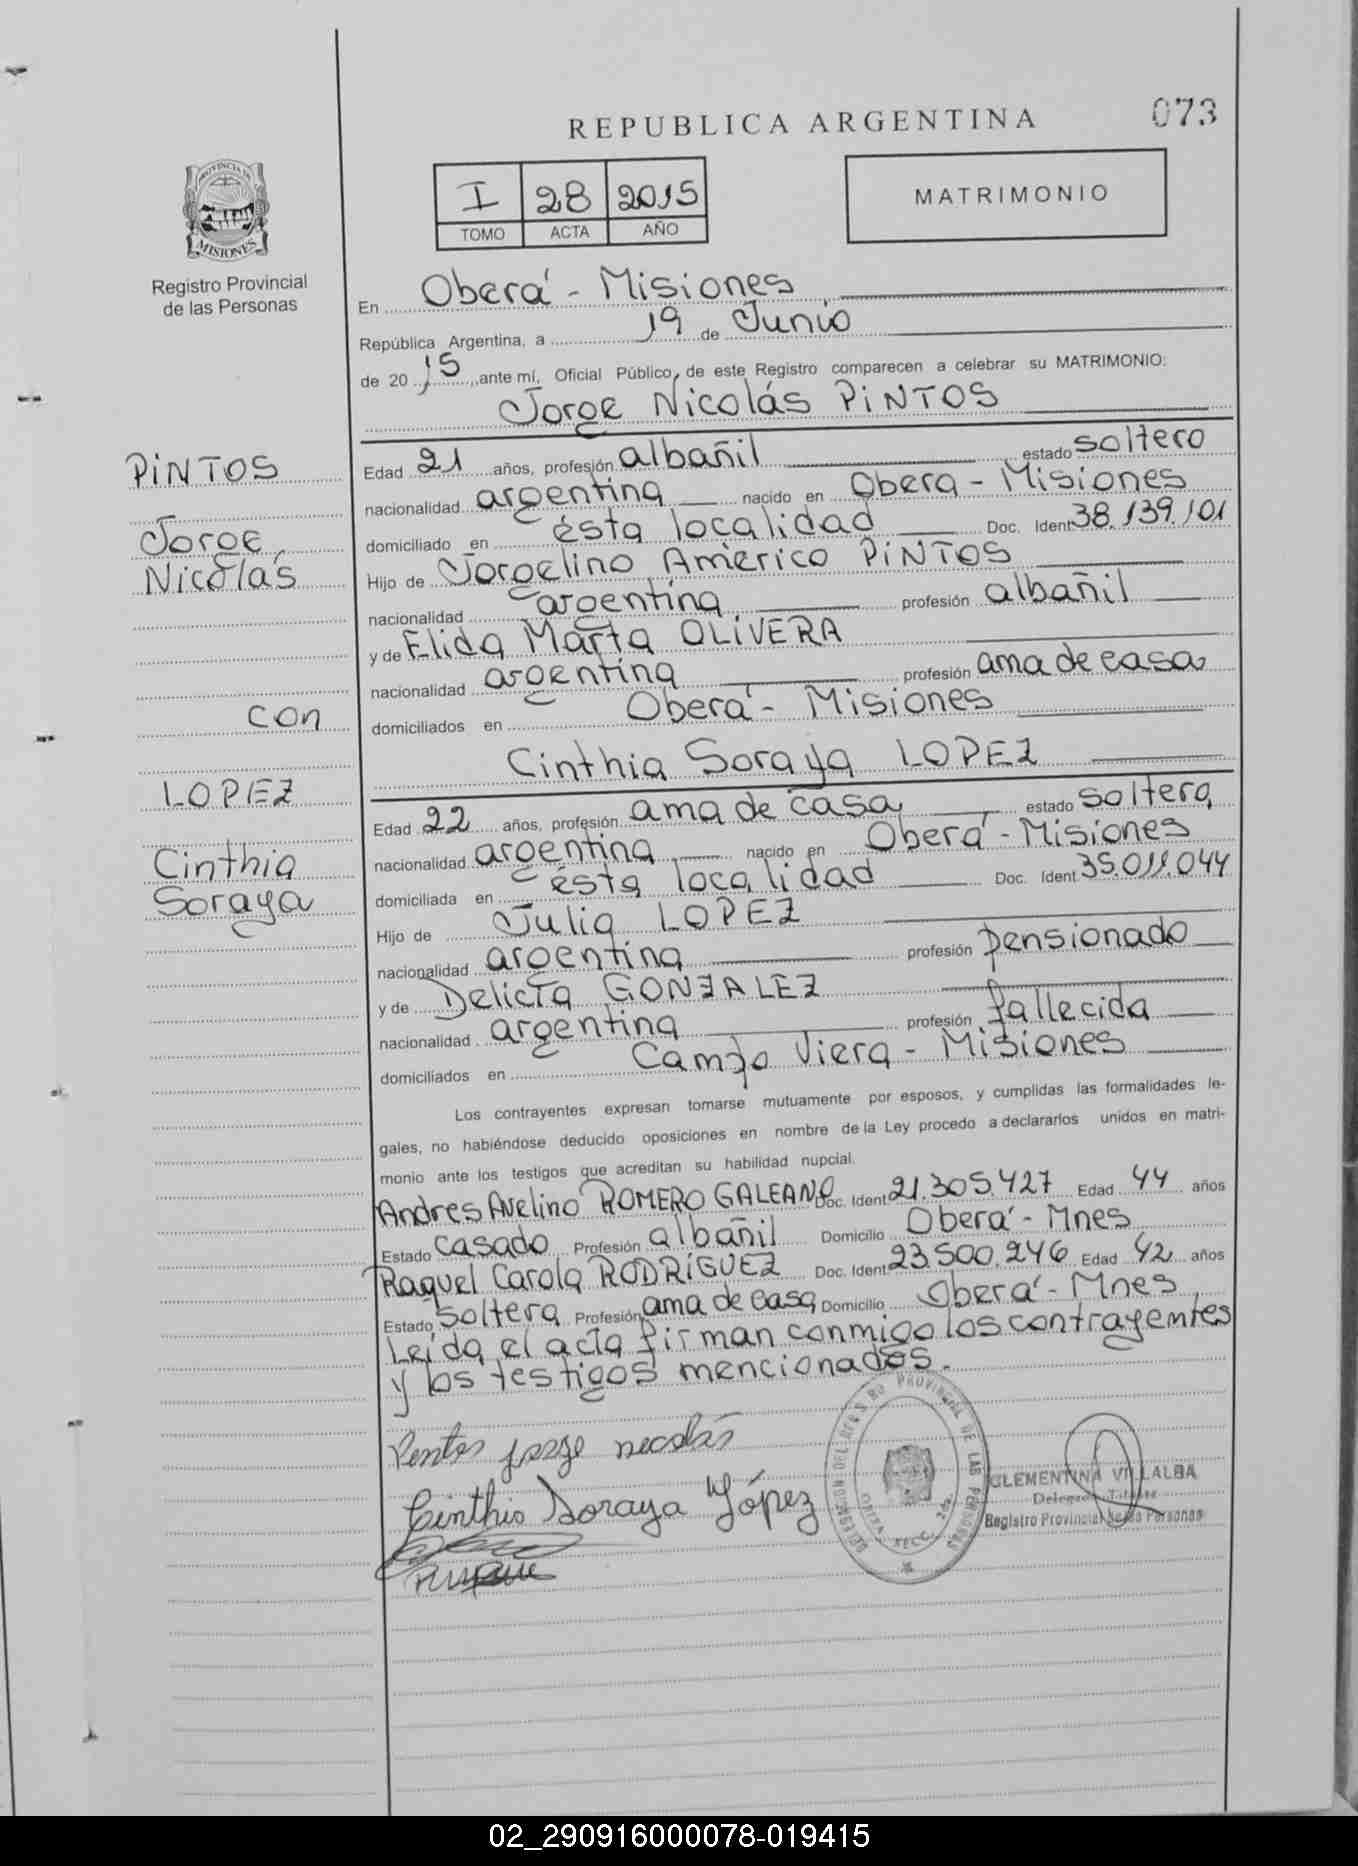 REPUBLICA ARGENTINA
073
PROVINCIA DE
MISIONES
Registro Provincial
de las Personas
I 28 2015
TOMO ACTA AÑO
MATRIMONIO
En Oberá - Misiones
República Argentina, a 19 de Junio
de 2015, ante mí, Oficial Público, de este Registro comparecen a celebrar su MATRIMONIO:
Jorge Nicolás PINTOS
PINTOS
Jorge
Nicolás
con
LOPEZ
Cinthia
Soraya
Edad 21 años, profesión albañil estado soltero
nacionalidad argentina nacido en Oberá - Misiones
domiciliado en ésta localidad Doc. Ident 38.139.101
Hijo de Jorgelino Américo PINTOS
nacionalidad argentina profesión albañil
y de Elida Marta OLIVERA
nacionalidad argentina profesión ama de casa
domiciliados en Oberá - Misiones
Cinthia Soraya LOPEZ
Edad 22 años, profesión ama de casa estado soltera
nacionalidad argentina nacido en Oberá - Misiones
domiciliada en ésta localidad Doc. Ident 35.011.044
Hijo de Julia LOPEZ
nacionalidad argentina profesión pensionado
y de Delicia GONZALEZ
nacionalidad argentina profesión fallecida
domiciliados en Campo Viera - Misiones
Los contrayentes expresan tomarse mutuamente por esposos, y cumplidas las formalidades le-
gales, no habiéndose deducido oposiciones en nombre de la Ley procedo a declararlos unidos en matri-
monio ante los testigos que acreditan su habilidad nupcial.
Andres Avelino ROMERO GALEANO Doc. Ident 21.305.427 Edad 44 años
Estado casado Profesión albañil Domicilio Oberá - Mnes
Raquel Carola RODRÍGUEZ Doc. Ident 23.500.246 Edad 42 años
Estado soltera Profesión ama de casa Domicilio Oberá - Mnes
Leída el acta firman conmigo los contrayentes
y los testigos mencionados.
Pintos jorge nicolás
Cinthia Soraya López
DELEGACION DEL REGISTRO PROVINCIAL DE LAS PERSONAS
SECC. 2da.
CLEMENTINA VILLALBA
Delegada Titular
Registro Provincial de las Personas
02_290916000078-019415